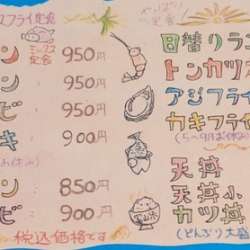 スフライ定食
ミックス定食
ン 950円
ン 950円
ビ 950円
キ 900円
ン 850円
ビ 900円
税込価格です
定食
日替りラン
トンカツ
アジフライ
カキフライ
天丼
天丼小
カツ丼
(どんぶり大盛